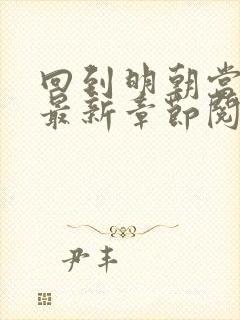 回到明朝当
最新章節閱
尹丰